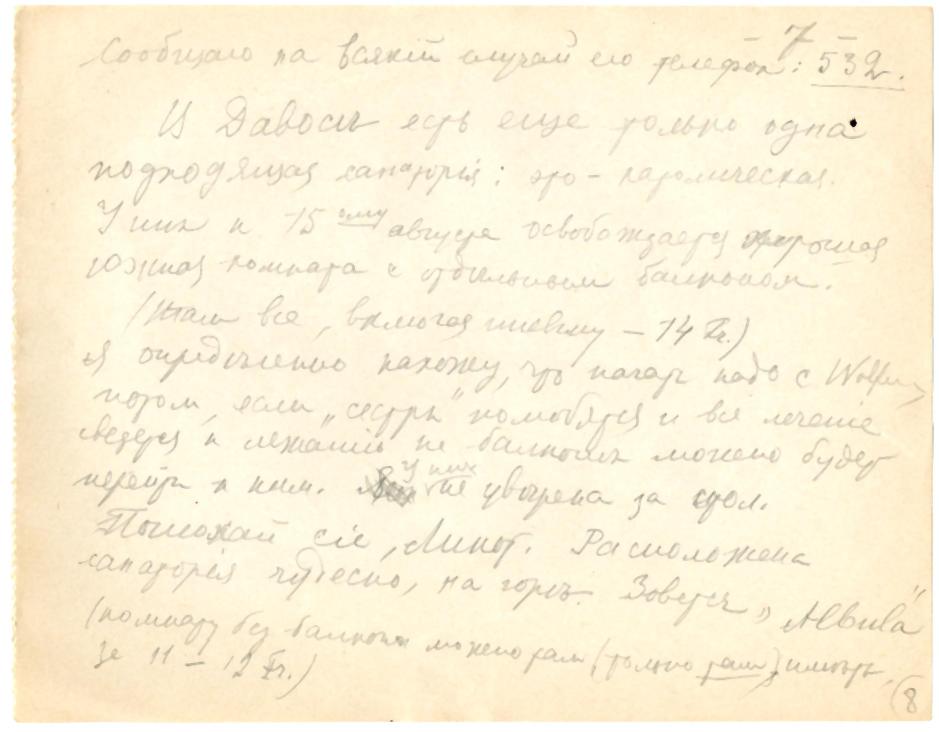 Сообщаю на всякій случай его телефон: 532.
— 7 —
Въ Давосѣ есть еще только одна
подходящая санаторія: это – католическая.
У них к 15 ому августа освобождается хорошая
южная комната с отдѣльным балконом.
(там все, включая – 14 Fr.)
Я опредѣленно нахожу, что начать надо с
потом, если „сестры" полюбятся и все леченіе
сведется к лежанію на балконѣ можно будет
перейти к ним. у них не увѣрена за стол.
сіе, Лиют. Расположена
санаторія чудесно, на горѣ. Зовется „Albula"
(комнату без балкона можно там (только там) имѣть
за 11 – 12 Fr.)
8